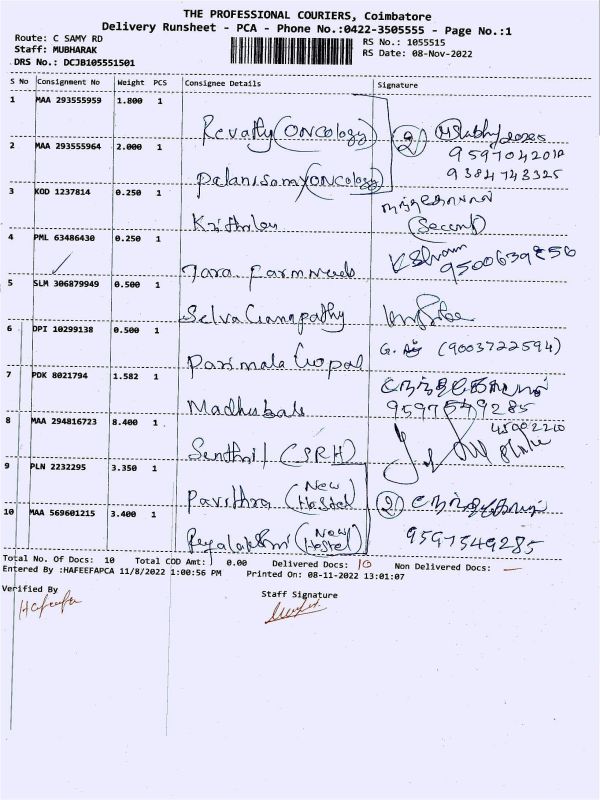 THE PROFESSIONAL COURIERS, Coimbatore
Delivery Runsheet - PCA - Phone No.:0422-3505555 - Page No.:1
Route: C SAMY RD
RS No.: 1055515
Staff: MUBHARAK
RS Date: 08-Nov-2022
DRS No.: DCJB105551501
S No Consignment No Weight PCS Consignee Details Signature
1 MAA 293555959 1.800 1
Revathy (Oncology) 2
2 MAA 293555964 2.000 1
9597042012
Palanisamy (Oncology) 9384743325
3 KOD 1237814 0.250 1
Krithila (Second)
4 PML 63486430 0.250 1
Tara Farm Needs 9500639856
5 SLM 306879949 0.500 1
Selva Ganapathy
6 DPI 10299138 0.500 1
Parimala Gopal (9003722594)
7 PDK 8021794 1.582 1
Madhubala 9597549285
8 MAA 294816723 8.400 1
45002210
Senthil (SRH)
9 PLN 2232295 3.350 1
Pavithra (New Hostel) 2
10 MAA 569601215 3.400 1
(New Hostel) 9597549285
Total No. Of Docs: 10 Total COD Amt: 0.00 Delivered Docs: 10 Non Delivered Docs: —
Entered By :HAFEEFAPCA 11/8/2022 1:00:56 PM Printed On: 08-11-2022 13:01:07
Verified By Staff Signature
Hafeefa